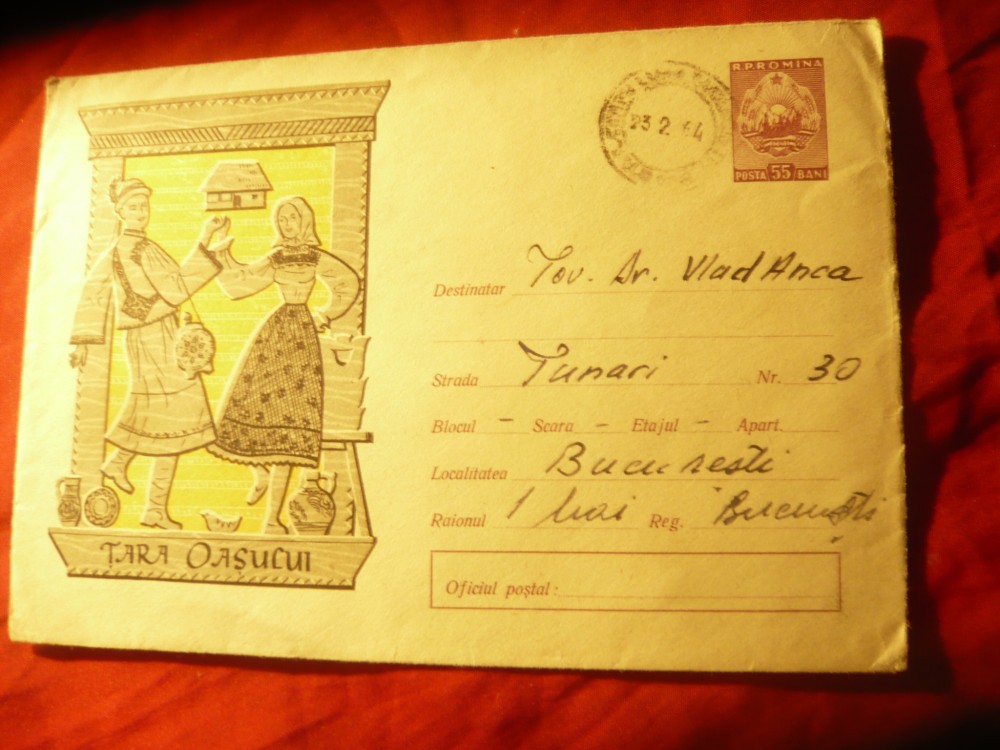 R.P.ROMINA
23 2 64
POSTA 55 BANI
Destinatar Tov. Dr. Vlad Anca
Strada Tunari Nr. 30
Blocul - Scara - Etajul - Apart.
Localitatea Bucuresti
Raionul 1 Mai Reg. Bucuresti
Oficiul poștal:
ȚARA OAȘULUI